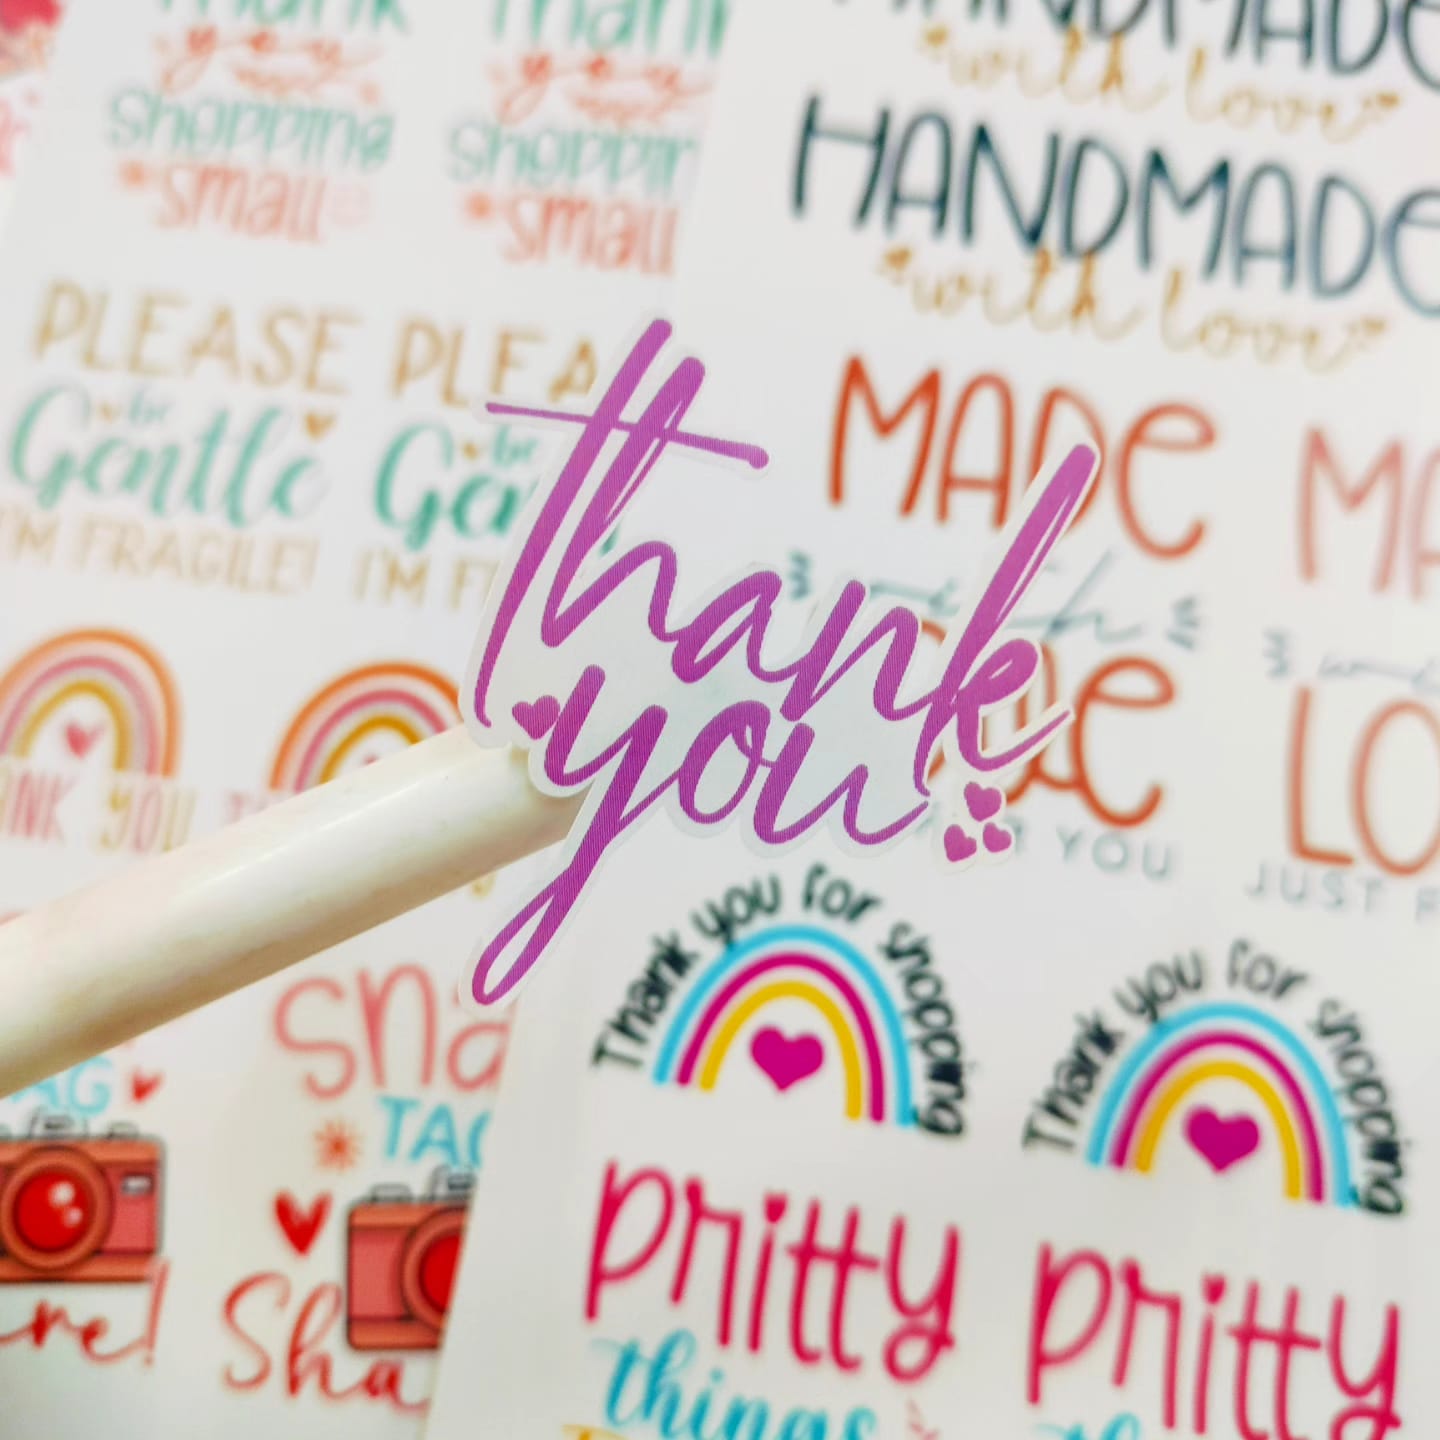 Thank
you
shopping
small
Thank
you
shoppin
small
HANDMADE
with love
HANDMADE
with love
PLEASE
be
Gentle
I'M FRAGILE!
PLEA
be
Ge
I'M F
thank
you
MADE
with
LOVE
YOU
MA
LO
JUST F
THANK YOU
Sna
TAG
TAG
Sha
are!
Thank you for shopping
Thank you for shopping
pritty
things
pritty
th